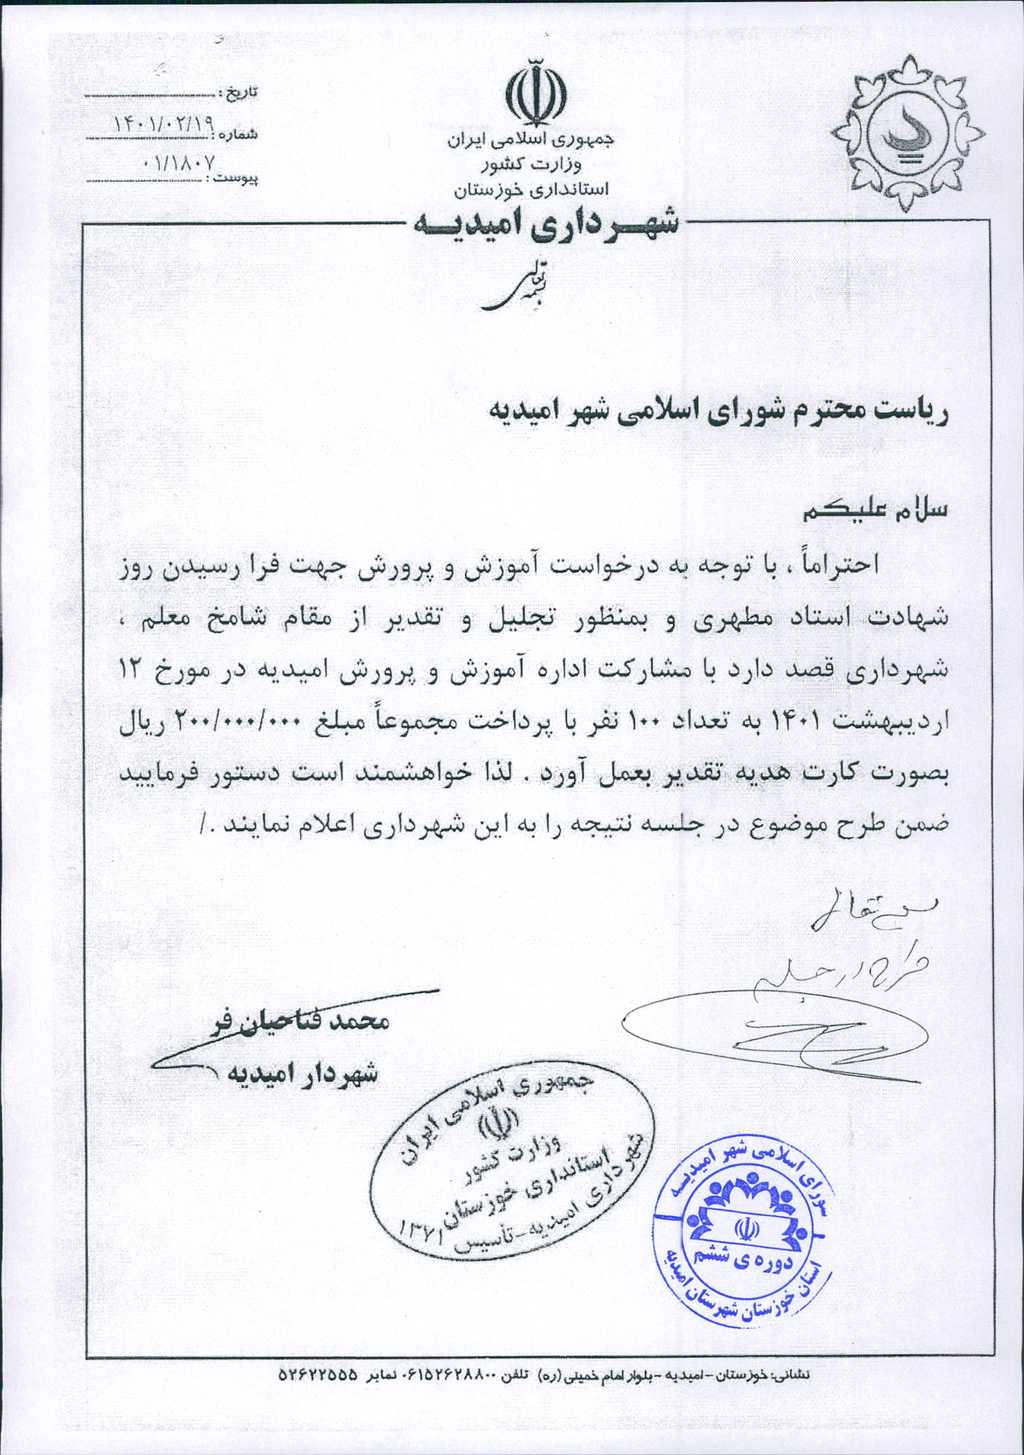 تاریخ :
۱۴۰۱/۰۲/۱۹
شماره :
۰۱/۱۸۰۷
پیوست :
جمهوری اسلامی ایران
وزارت کشور
استانداری خوزستان
شهرداری امیدیه
بسمه تعالی
ریاست محترم شورای اسلامی شهر امیدیه
سلام علیکم
احتراماً ، با توجه به درخواست آموزش و پرورش جهت فرا رسیدن روز
شهادت استاد مطهری و بمنظور تجلیل و تقدیر از مقام شامخ معلم ،
شهرداری قصد دارد با مشارکت اداره آموزش و پرورش امیدیه در مورخ ۱۲
اردیبهشت ۱۴۰۱ به تعداد ۱۰۰ نفر با پرداخت مجموعاً مبلغ ۲۰۰/۰۰۰/۰۰۰ ریال
بصورت کارت هدیه تقدیر بعمل آورد . لذا خواهشمند است دستور فرمایید
ضمن طرح موضوع در جلسه نتیجه را به این شهرداری اعلام نمایند ./
بسمه تعالی
طرح در جلسه
محمد فتاحیان فر
شهردار امیدیه
جمهوری اسلامی ایران
وزارت کشور
استانداری خوزستان
شهرداری امیدیه-تأسیس ۱۳۷۱
شورای اسلامی شهر امیدیه
دوره ی ششم
استان خوزستان شهرستان امیدیه
نشانی: خوزستان -امیدیه -بلوار امام خمینی (ره) تلفن ۰۶۱۵۲۶۲۸۸۰۰ نمابر ۵۲۶۲۲۵۵۵